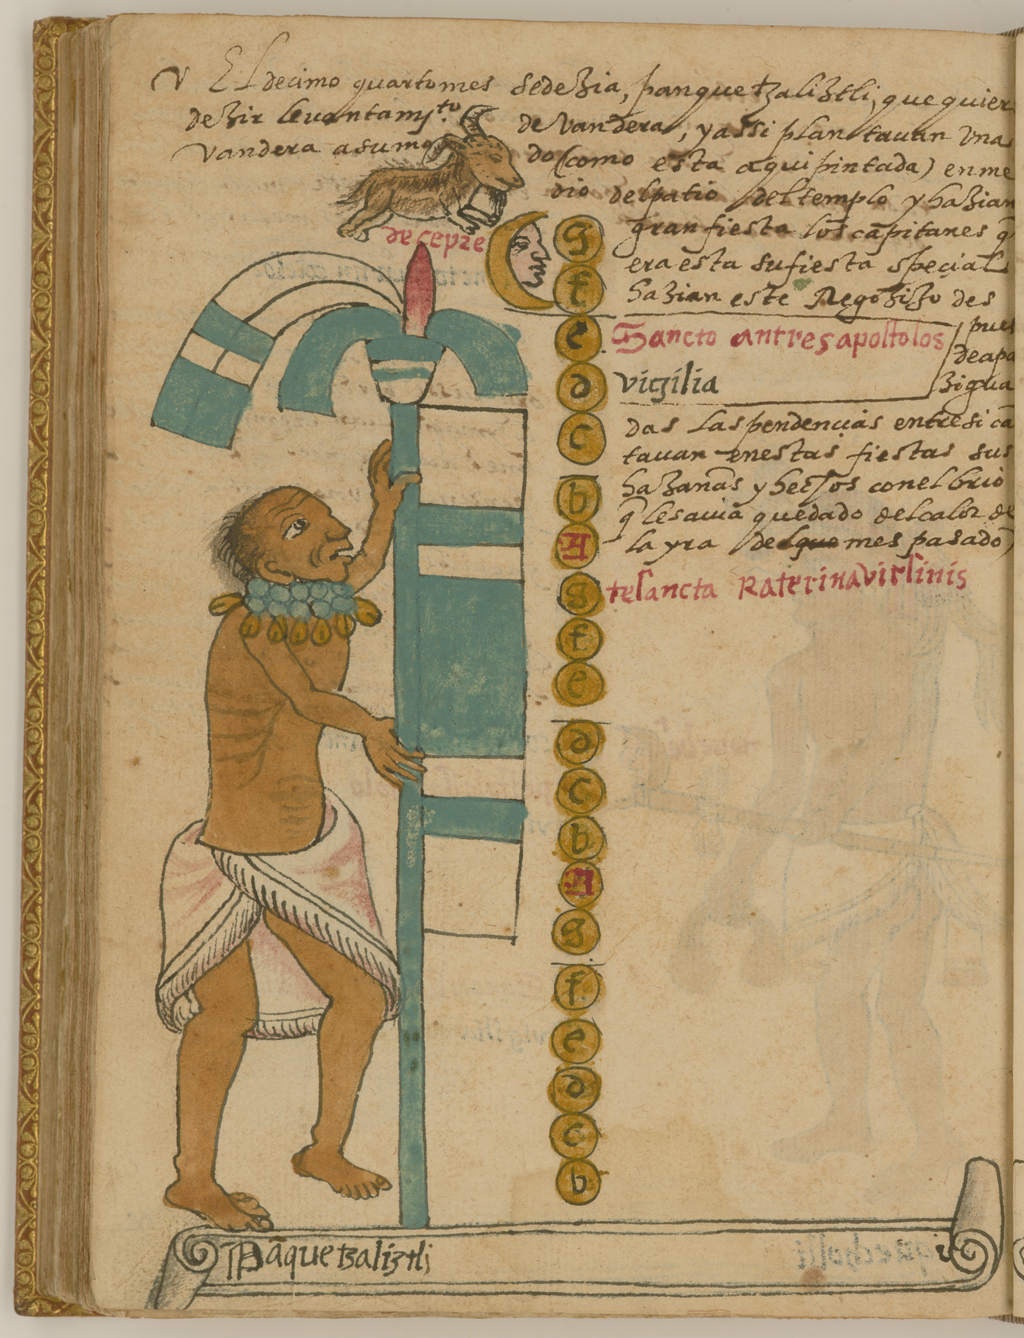 V El decimo quartomes sedezia, panquetzaliztli, que quier
dezir levantamj.to de vandera, yassi plantavan vna
vandera asumodo (como esta aquipintada) enme
dio delpatio deltemplo y hazian
granfiesta los cãpitanes q̃
era esta sufiesta special
hazian este Regozizo des
pues
deapa
zigua
das las pendencias entresi cã
tavan enestas fiestas sus
hazanãs y hechos conelbrio
q̃ lesavia quedado delcalor de
la yra del mes pasado
de cepre
g
f
e Sancto antres apostolos
d vigilia
c
b
A
g te sancta Katerina virginis
f
e
d
c
b
A
g
f
e
d
c
b
Pãquetzaliztli